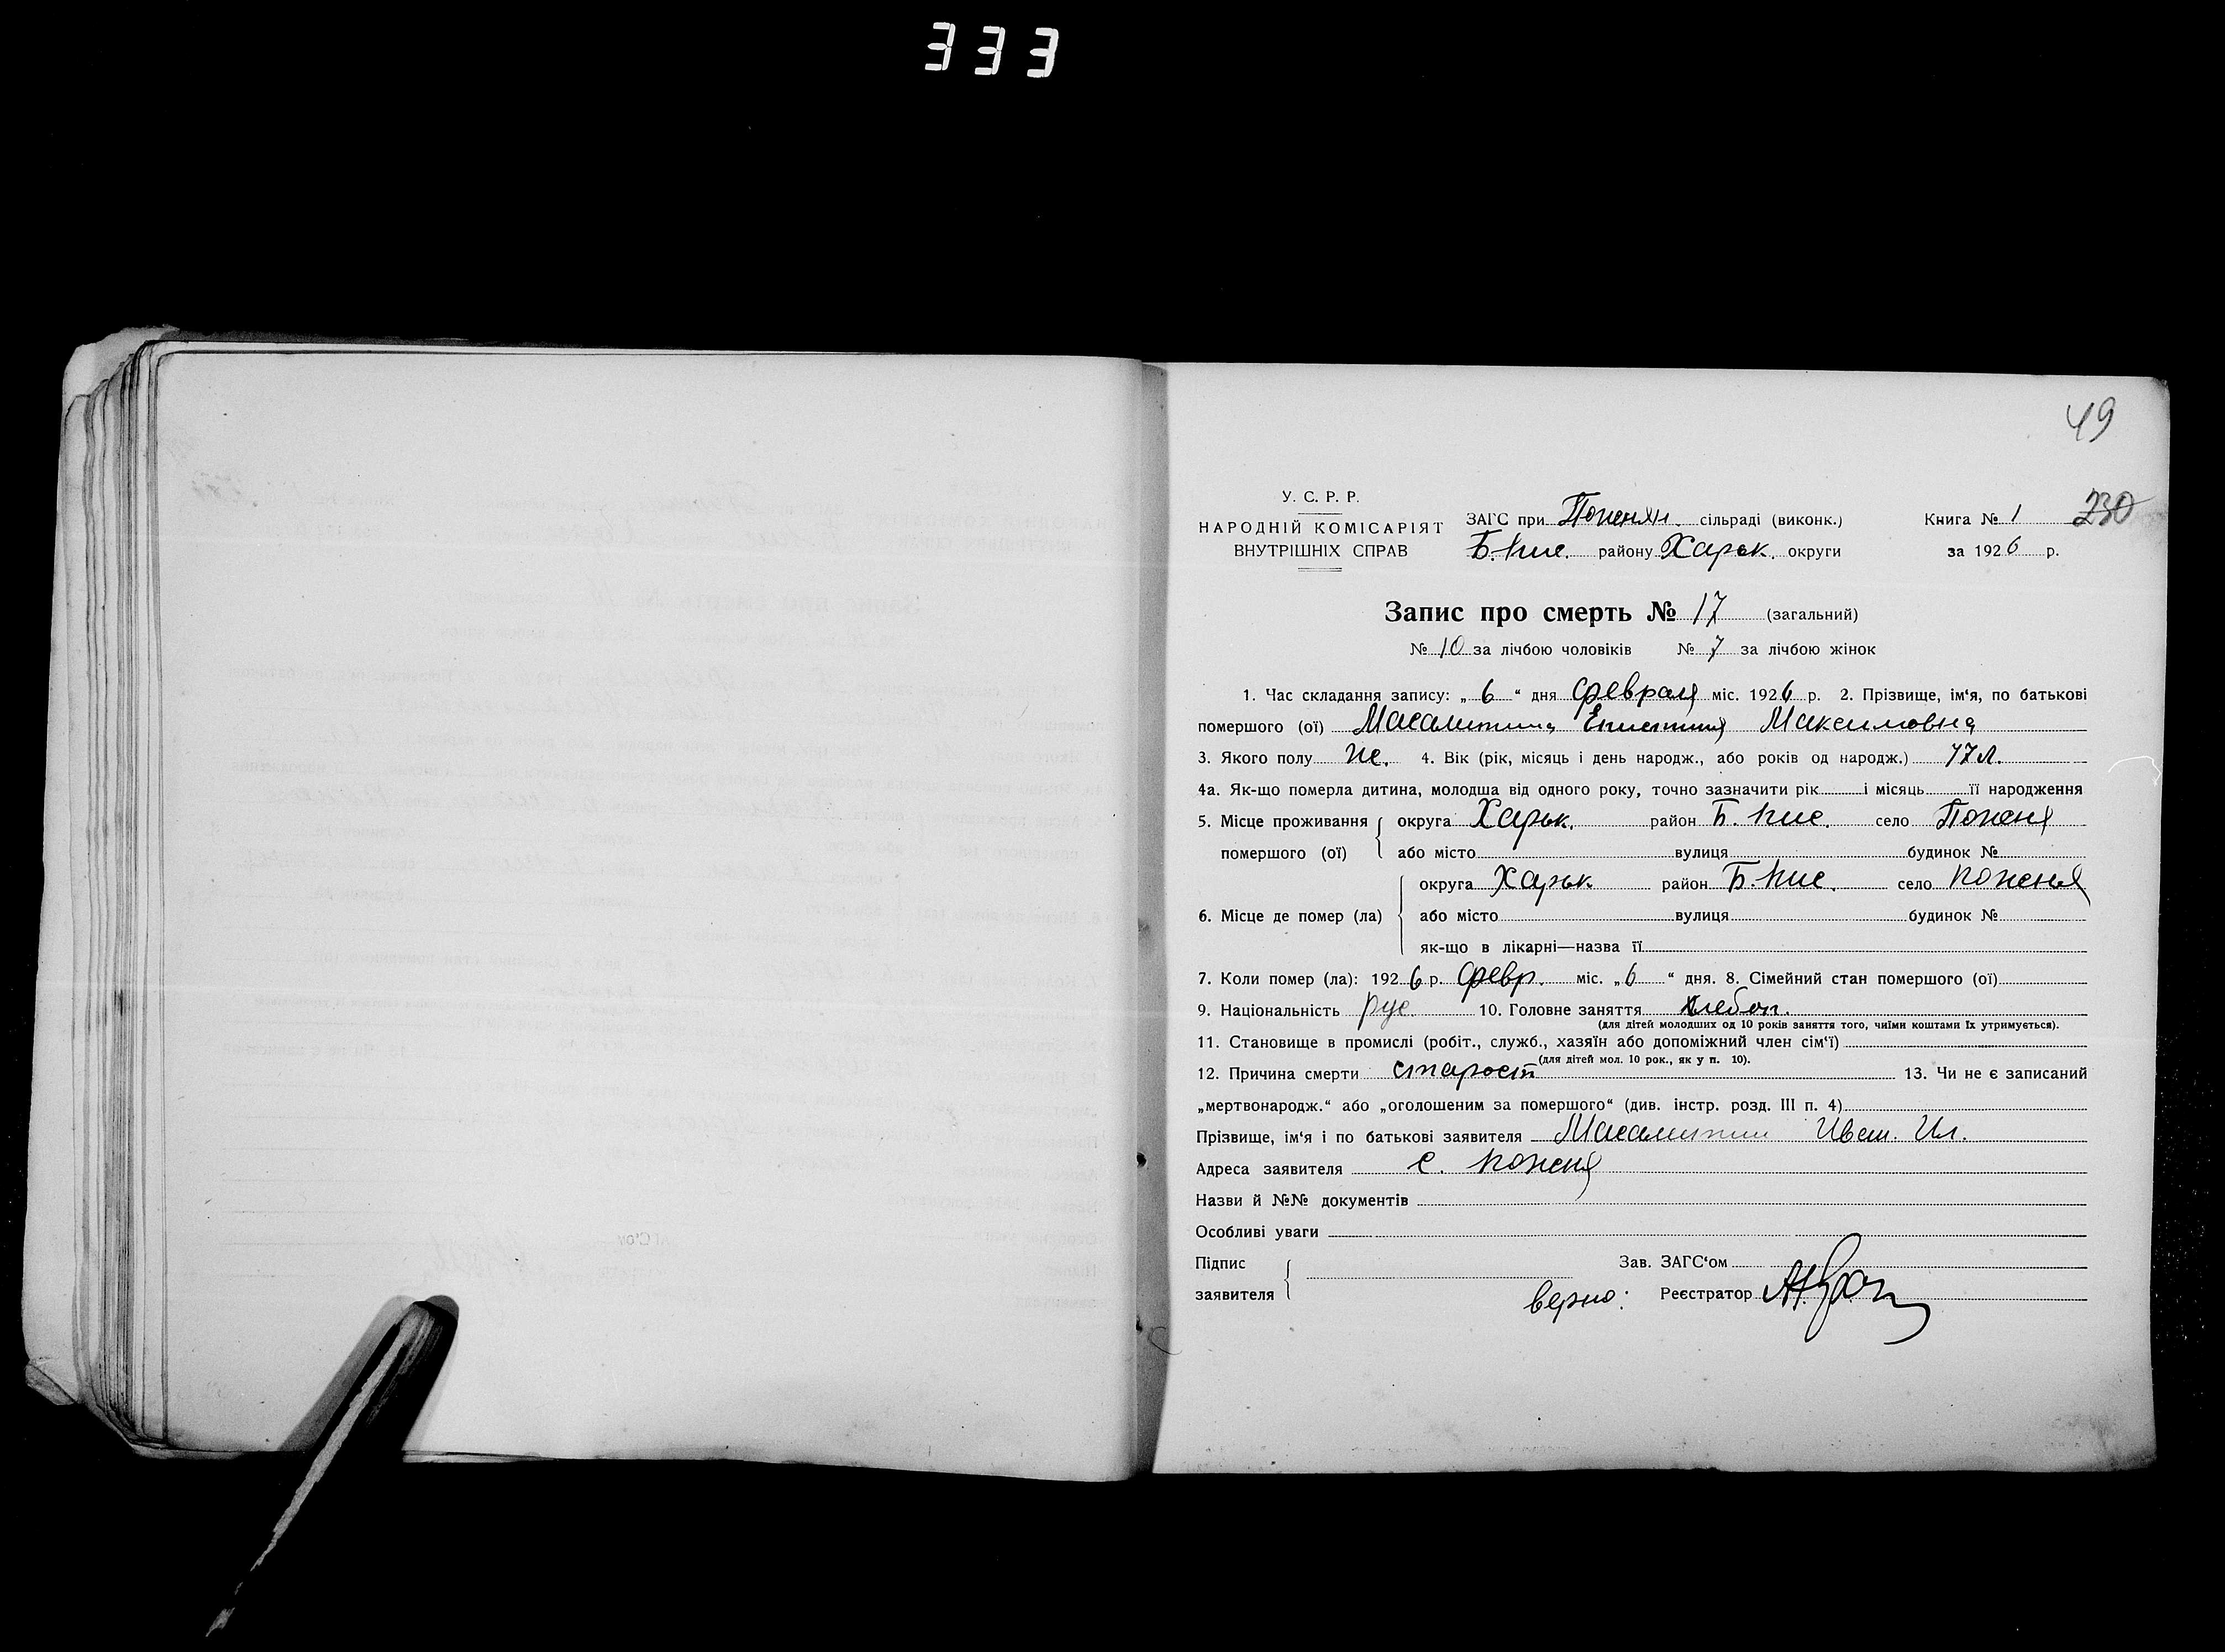 333
49
У. С. Р. Р.
НАРОДНІЙ КОМІСАРІЯТ
ВНУТРІШНІХ СПРАВ
ЗАГС при сільраді (виконк.)
Б. района Харьк. округи
Книга № 1 230
за 1926 р.
Запис про смерть № 17 (загальний)
№ 10 за лічбою чоловіків № 7 за лічбою жінок
1. Час складання запису: „ 6 “ дня февраля міс. 1926 р. 2. Прізвище, ім‘я, по батькові
помершого (ої) Максимовна
3. Якого полу же. 4. Вік (рік, місяць і день народж., або років од народж.) 77 л.
4а. Як-що померла дитина, молодша від одного року, точно зазначити рік і місяць її народження
5. Місце проживання округа Харьк. район Б. село
помершого (ої) або місто вулиця будинок №
округа Харьк район Б. село
6. Місце де помер (ла) або місто вулиця будинок №
як-що в лікарні—назва її
7. Коли помер (ла): 1926 р. февр. міс. „ 6 “ дня. 8. Сімейний стан помершого (ої)
9. Національність рус. 10. Головне заняття хлебоп.
(для дітей молодших од 10 років заняття того, чиїми коштами їх утримується).
11. Становище в промислі (робіт., служб., хазяїн або допоміжний член сім‘ї)
(для дітей мол. 10 рок., як у п. 10).
12. Причина смерти старост 13. Чи не є записаний
„мертвонародж.“ або „оголошеним за помершого“ (див. інстр. розд. III п. 4)
Прізвище, ім‘я і по батькові заявителя Ил.
Адреса заявителя с.
Назви й №№ документів
Особливі уваги
Підпис
заявителя
Зав. ЗАГС‘ом
верно: Реєстратор